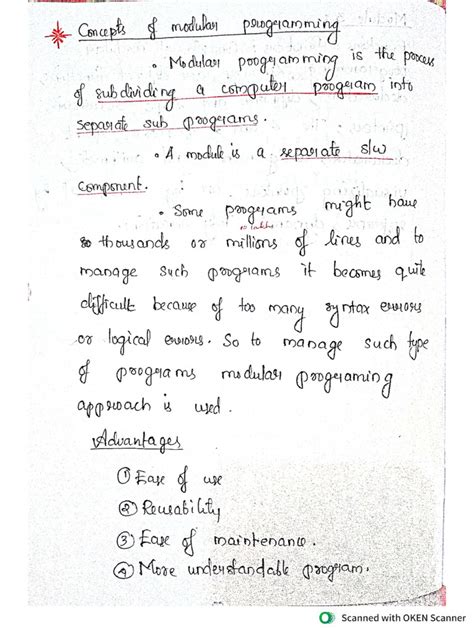 Concepts of modular programming
• Modular programming is the process
of subdividing a computer program into
separate sub programs.
• A module is a separate s/w
component.
• Some programs might have
thousands or millions of lines and to
manage such programs it becomes quite
difficult because of too many syntax errors
or logical errors. So to manage such type
of programs modular programing
approach is used.
Advantages
① Ease of use
② Reusability
③ Ease of maintenance.
④ More understandable program.
Scanned with OKEN Scanner